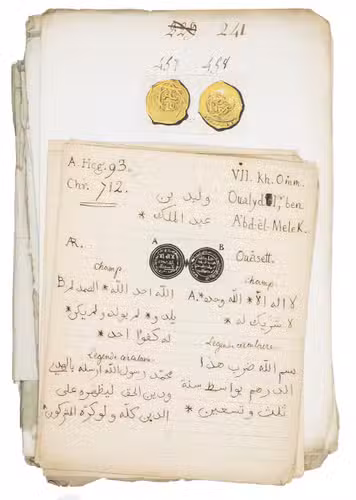 241
A. Heg. 93.
VII. Kh. Omm.
Chr. 712.
وليد بن
Oualyd I, ben
عبد الملك *
A'bd-êl-Melek.
AR.
A
B
Ouâsett.
champ
champ
B الله احد الله * الصمد لم
يلد و * لم يولد و لم يكن *
له كفوًا احد *
A. لا اله الا * الله وحده *
لا شريك له *
Légende circulaire
Légende circulaire
محمد رسول الله ارسله بالهدى
ودين الحق ليظهره على
الدين كله ولو كره المشركون
بسم الله ضرب هذا
الدرهم بواسط سنة
ثلث و تسعين *